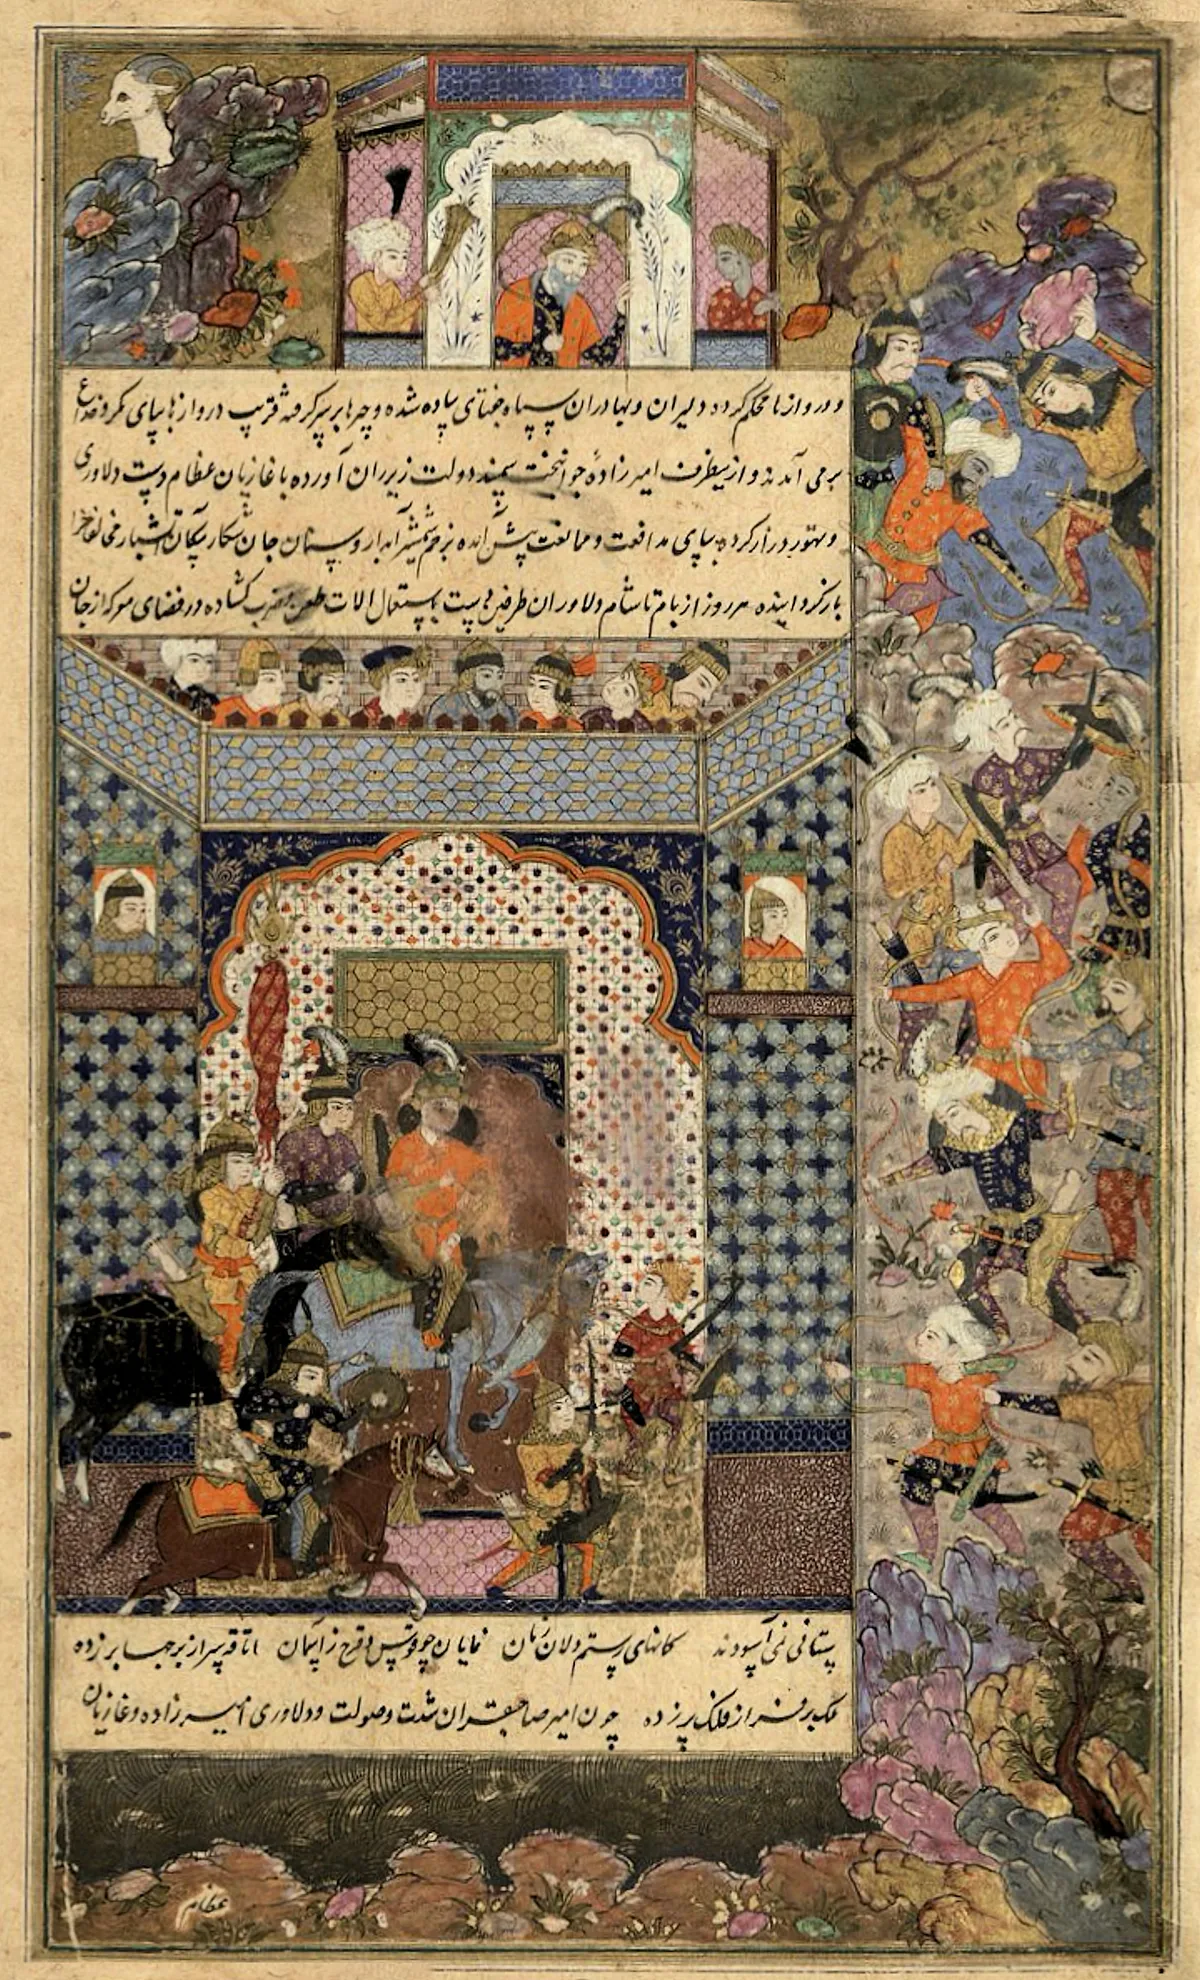 و دروازها محکم کرده دلیران و بهادران سپاه جغتای پیاده شده و چپرها بر سر گرفته قریب دروازها بپای مکر و خداع
برمی آمدند و ازینطرف امیرزادهٔ جوانبخت سمند دولت زیر ران آورده با غازیان عظام دست دلاوری
و تهور دراز کرده بپای مدافعت و ممانعت پیش آمده بزخم شمشیر آبدار و سنان جان شکار پیکان آتشبار مخالفانرا
بازگردانیده هر روز از بام تا شام دلاوران طرفین دست باستعمال الات طعن و ضرب کشاده در فضای معرکه از جان
ستانی نمی آسودند کمانهای رستم دلان زمان نمایان چو قوس و قزح ز آسمان اتاقه سر از برجها بر زده
ملک بر فراز فلک پر زده چون امیر صاحبقران شدت و صولت و دلاوری امیرزاده و غازیان
عظام